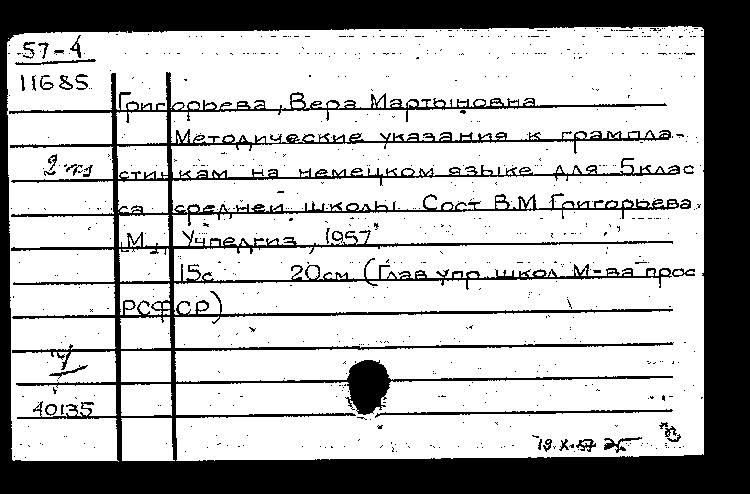 57-4
11685
Григорьева, Вера Мартыновна
Методические указания к грампла-
2
стинкам на немецком языке для 5 клас
са средней школы. Сост В.М Григорьева.
М., Учпедгиз, 1957
15с 20см (Глав упр школ М-ва прос
РСФСР)
40135
19.X.57